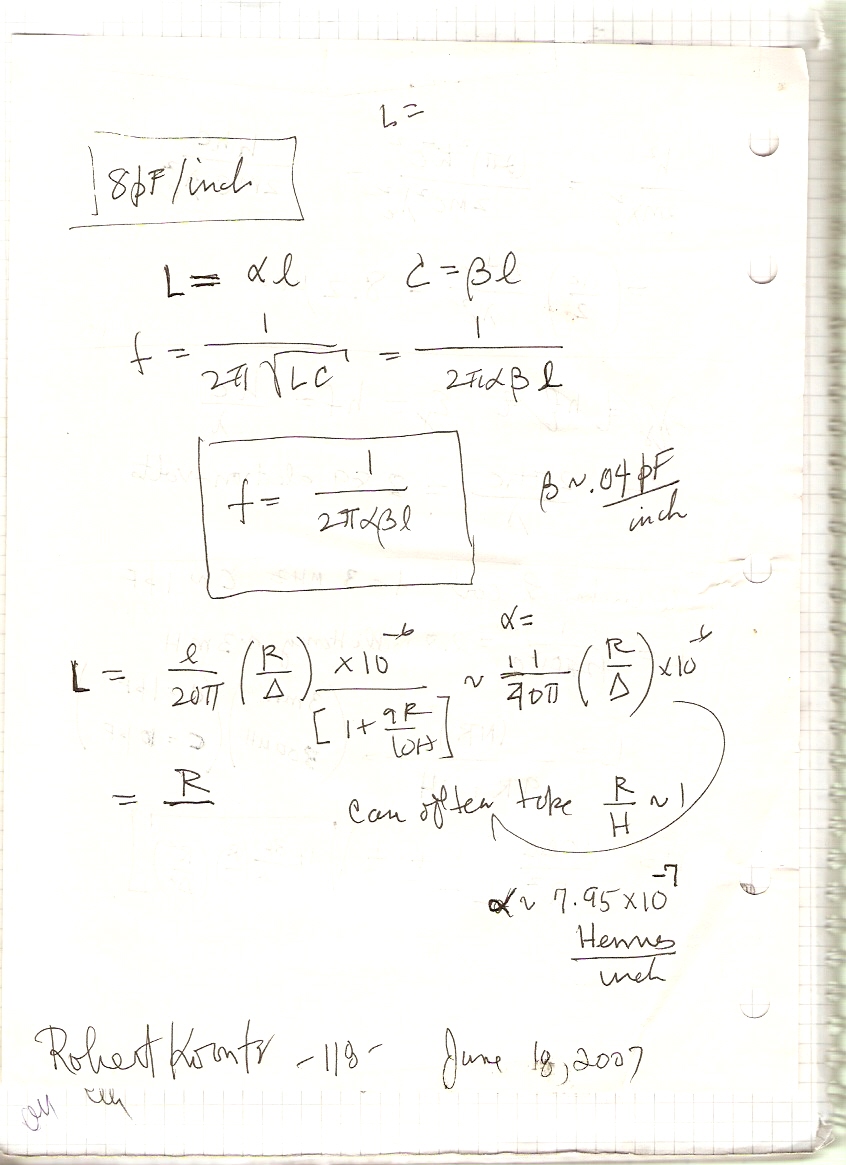 L =
8pF/inch
L = αl C = βl
f = 1/(2π√(LC)) = 1/(2παβl)
f = 1/(2παβl)
β ~ .04 pF/inch
α =
L = l/(20π) (R/Δ) × 10^-6/[1 + 9R/10H] ~ 1/(40π) (R/Δ) × 10^-6
= R
can often take R/H ~ 1
α ~ 7.95 × 10^-7
Henrys/inch
Robert Koontz - 118 - June 18, 2007